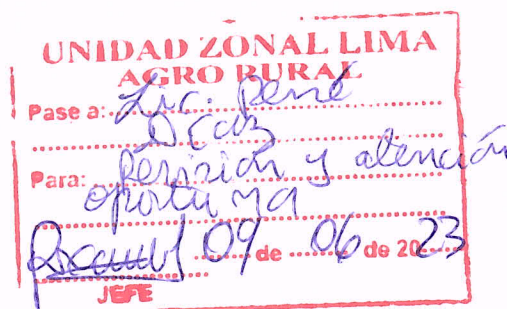 UNIDAD ZONAL LIMA
AGRO RURAL
Pase a: Lic. René
Díaz
Para: Revisión y atención
oportuna
09 de 06 de 2023
JEFE